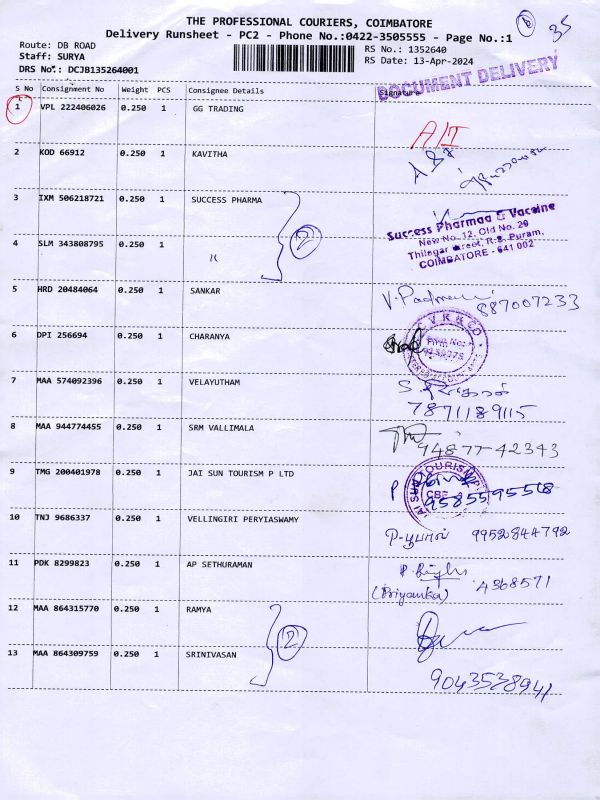 THE PROFESSIONAL COURIERS, COIMBATORE
Delivery Runsheet - PC2 - Phone No.:0422-3505555 - Page No.:1
35
Route: DB ROAD
RS No.: 1352640
Staff: SURYA
RS Date: 13-Apr-2024
DRS No.: DCJB135264001
DOCUMENT DELIVERY
S No Consignment No Weight PCS Consignee Details Signature
1 VPL 222406026 0.250 1 GG TRADING
2 KOD 66912 0.250 1 KAVITHA
3 IXM 506218721 0.250 1 SUCCESS PHARMA
2
Success Pharmaa & Vaccine
New No. 12, Old No. 29
Thilagar street, R.S. Puram,
COIMBATORE - 641 002
4 SLM 343808795 0.250 1 "
5 HRD 20484064 0.250 1 SANKAR
887007233
6 DPI 256694 0.250 1 CHARANYA
7 MAA 574092396 0.250 1 VELAYUTHAM
7871189115
8 MAA 944774455 0.250 1 SRM VALLIMALA
94877-42343
9 TMG 200401978 0.250 1 JAI SUN TOURISM P LTD
9585595568
10 TNJ 9686337 0.250 1 VELLINGIRI PERYIASWAMY
9952844792
11 PDK 8299823 0.250 1 AP SETHURAMAN
(Priyanka) 4368571
12 MAA 864315770 0.250 1 RAMYA
2
13 MAA 864309759 0.250 1 SRINIVASAN
9043538941